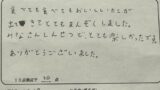 食べても食べてもおいしいものが
出てきてとてもまんぞくしました。
みなさんしんせつで、とても楽しかったです
ありがとうございました。
10